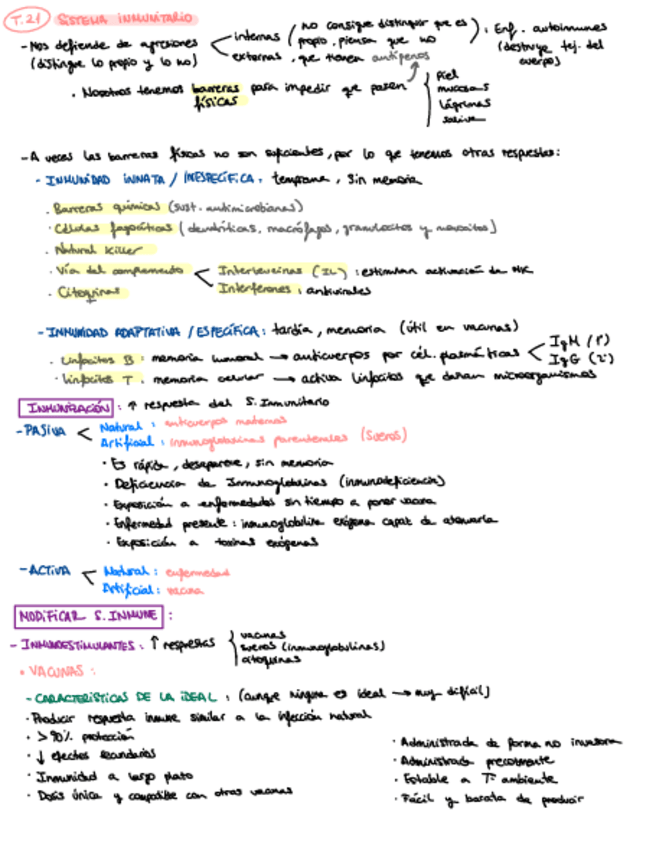 T.21 SISTEMA INMUNITARIO
- Nos defiende de agresiones (distingue lo propio y lo no)
internas (no consigue distinguir que es propio, piensa que no) : Enf. autoinmunes (destruye tej. del cuerpo)
externas, que tienen antígenos
· Nosotros tenemos barreras físicas para impedir que pasen
piel
mucosas
lágrimas
saliva
- A veces las barreras físicas no son suficientes, por lo que tenemos otras respuestas:
- INMUNIDAD INNATA / INESPECÍFICA: temprana, sin memoria
· Barreras químicas (sust. antimicrobianas)
· Células fagocíticas (dendríticas, macrófagos, granulocitos y monocitos)
· Natural Killer
· Vía del complemento
· Citoquinas
Interleucinas (IL): estimulan activación de NK
Interferones: antivirales
- INMUNIDAD ADAPTATIVA / ESPECÍFICA: tardía, memoria (útil en vacunas)
· Linfocitos B: memoria humoral → anticuerpos por cél. plasmáticas
IgM (1º)
IgG (2º)
· Linfocitos T: memoria celular → activa linfocitos que dañan microorganismos
INMUNIZACIÓN: ↑ respuesta del S. Inmunitario
- PASIVA
Natural: anticuerpos maternos
Artificial: inmunoglobulinas parenterales (sueros)
· Es rápida, desaparece, sin memoria
· Deficiencia de Inmunoglobulinas (inmunodeficiencia)
· Exposición a enfermedades sin tiempo a poner vacuna
· Enfermedad presente: inmunoglobulina exógena capaz de atenuarla
· Exposición a toxinas exógenas
- ACTIVA
Natural: enfermedad
Artificial: vacuna
MODIFICAR S. INMUNE:
- INMUNOESTIMULANTES: ↑ respuestas
vacunas
sueros (inmunoglobulinas)
citoquinas
• VACUNAS:
- CARACTERÍSTICAS DE LA IDEAL: (aunque ninguna es ideal → muy difícil)
· Producir respuesta inmune similar a la infección natural
· > 90% protección
· ↓ efectos secundarios
· Inmunidad a largo plazo
· Dosis única y compatible con otras vacunas
· Administrada de forma no invasora
· Administrada precozmente
· Estable a Tª ambiente
· Fácil y barata de producir